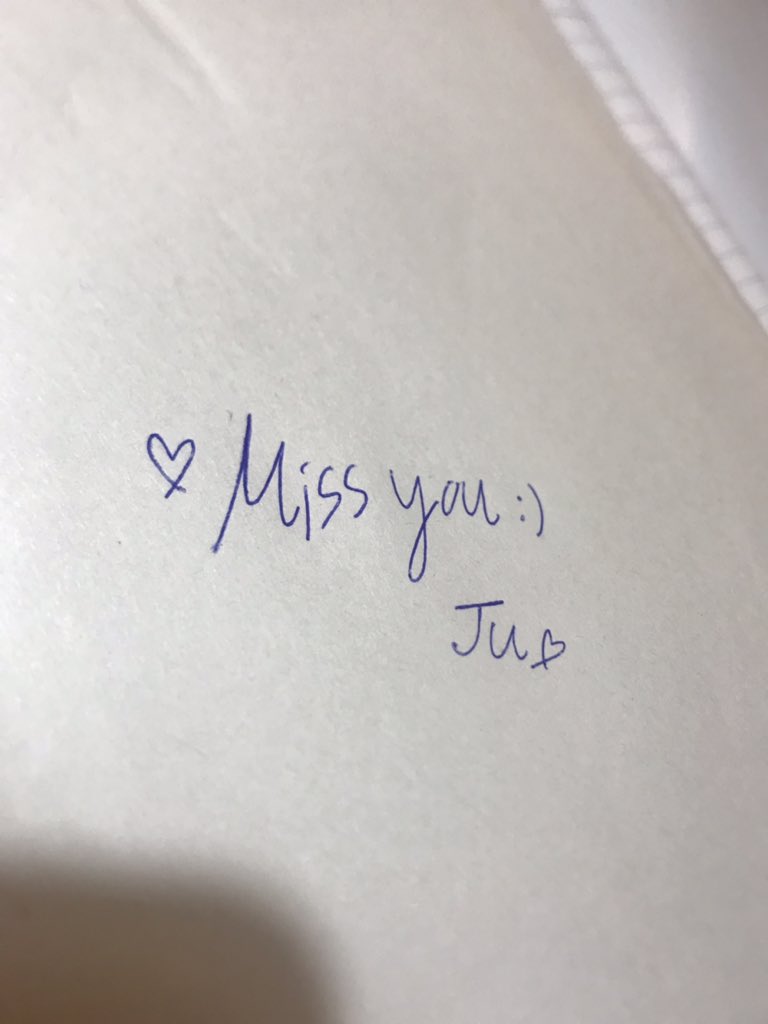 ♡ Miss you :)
Ju♡